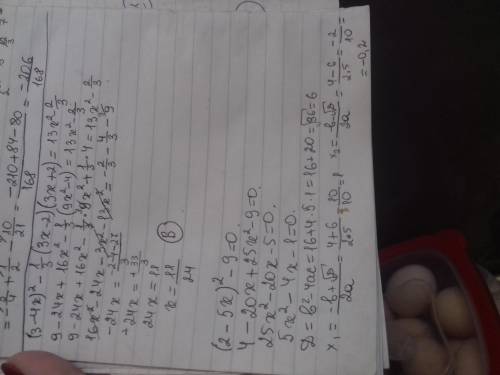 = -10/4 + 1/2 - 10/21 = (-210+84-80)/168 = -206/168
(3-4x)² - 1/3(3x-2)(3x+2) = 13x² 2/3
9-24x+16x² - 1/3(9x²-4) = 13x² - 2/3
9-24x+16x² - 1/3·9x² + 1/3·4 = 13x² - 2/3
16x² - 24x - 3x² - 13x² = -2/3 - 4/3 - 9
-24x =
+24x = + 33/3
24x = 11
x = 11/24 (B)
(2-5x)² - 9=0
4-20x+25x²-9=0.
25x²-20x-5=0.
5x²-4x-1=0.
D = b²-4ac = 16+4·5·1 = 16+20 = √36 = 6
x₁ = (-b+√D)/2a = (4+6)/2·5 = 10/10 = 1 x₂ = (-b-√D)/2a = (4-6)/2·5 = -2/10 =
= -0,2